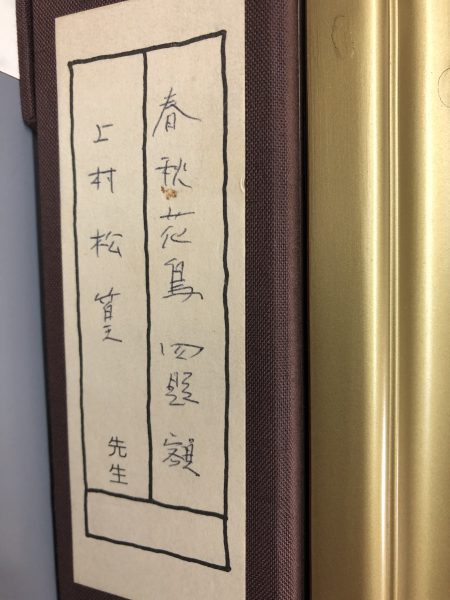 春秋花鳥四題額
上村松篁 先生